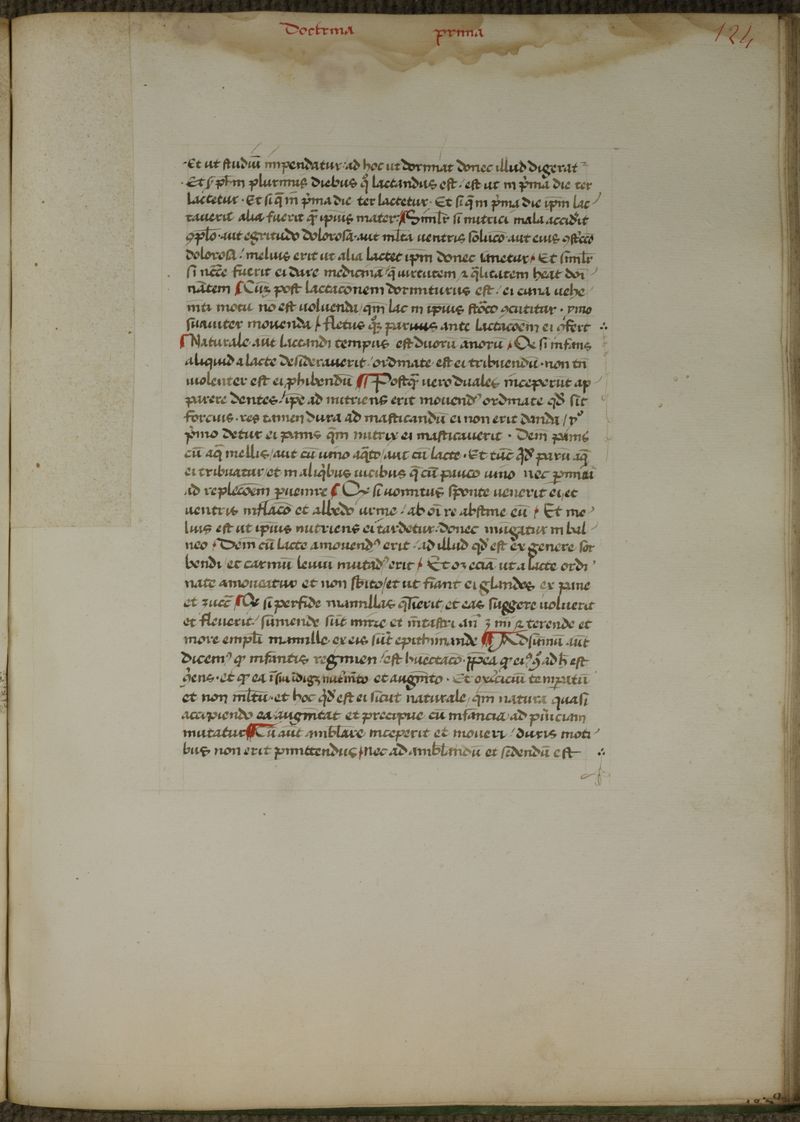 Doctrina prima
124
Et ut studiū impendatur ad hoc ut dormiat donec illud digerat
Et plurimis diebus q̄ lactandus est / est ut in p̄ma die ter
lactetur · Et si q̄ in p̄ma die ter lactetur · Et si q̄ in p̄ma die ip̄m lac
tauerit alia fuerit q̄ ipius mater Simlr si nutrici mala accidit
aut egritudo dolorosa aut mlta uentris solutio aut eius
dolorosa / melius erit ut alia lactet ip̄m donec Et simlr
si fuerit ei dare medicina q̄ uirtutem ⁊ q̄litatem heat doi
natem Cuz post lactaconem dormiturus est / ei cuna uehe
mti motu no est uoluenda qm lac in ipius stōco ꝯcutitur · ymo
suauiter mouenda fletus paruus ante lactacoem ei ꝯfert
Naturale aut lactandi tempus est duorū anorū Et si infans
aliquid a lacte desiderauerit / ordinate est ei tribuendū · non tn̄
uiolenter est ei phibendū Postq̄ uero duales inceperūt ap
parere dentes / ipe ad nutriens erit mouend9 ordinate qd̄ sit
forcius · res tamen dura ad masticandū ei non erit danda /
p̄mo detur ei panis q̄m nutrix ei masticauerit · Dein panis
cū aq̄ mellis / aut cū uino aut cū lacte · Et tūc paru aq̄
ei tribuatur / et in aliq̄bus uicibus q̄ cū pauco uino nec
ad replecōem puenire Et si uomitus sponte uenerit ei et
uentris inflaco et albedo urine / ab oī re abstine eū Et me
lius est ut ipius nutriens ei tardetur donec inungatur in bal
neo Dein cū lacte amouend9 erit / ad illud qd̄ est ex genere sor
bendi et carniū leuiū mutad9 erit Et ecia ut a lacte ordi
nate amoueatur et non sbito / et ut fiant ei glandes ex pane
et zucc̄ Et si perfide mamillas q̄sierit et eas suggere uoluerit
et fleuerit / sumende sūt mirte et mtastri an ʒ iiii ⁊ terende et
more empli mamille ex eis sūt epithimande Ad sūmā aut
dicem9 q infantis regimen / est huectaco q ei9 ad h est
et q ea et augmto Et exciciū temp̄atū
et non mltū · et hoc qd̄ est ei sicut naturale · qm natura quasi
accipiendo ea augmtat et precipue cū infancia ad piuciam
mutatur Cū aut amblare inceperit et moueri / duris moti
bus non erit pmittendus nec ad amblandū et sedendū est